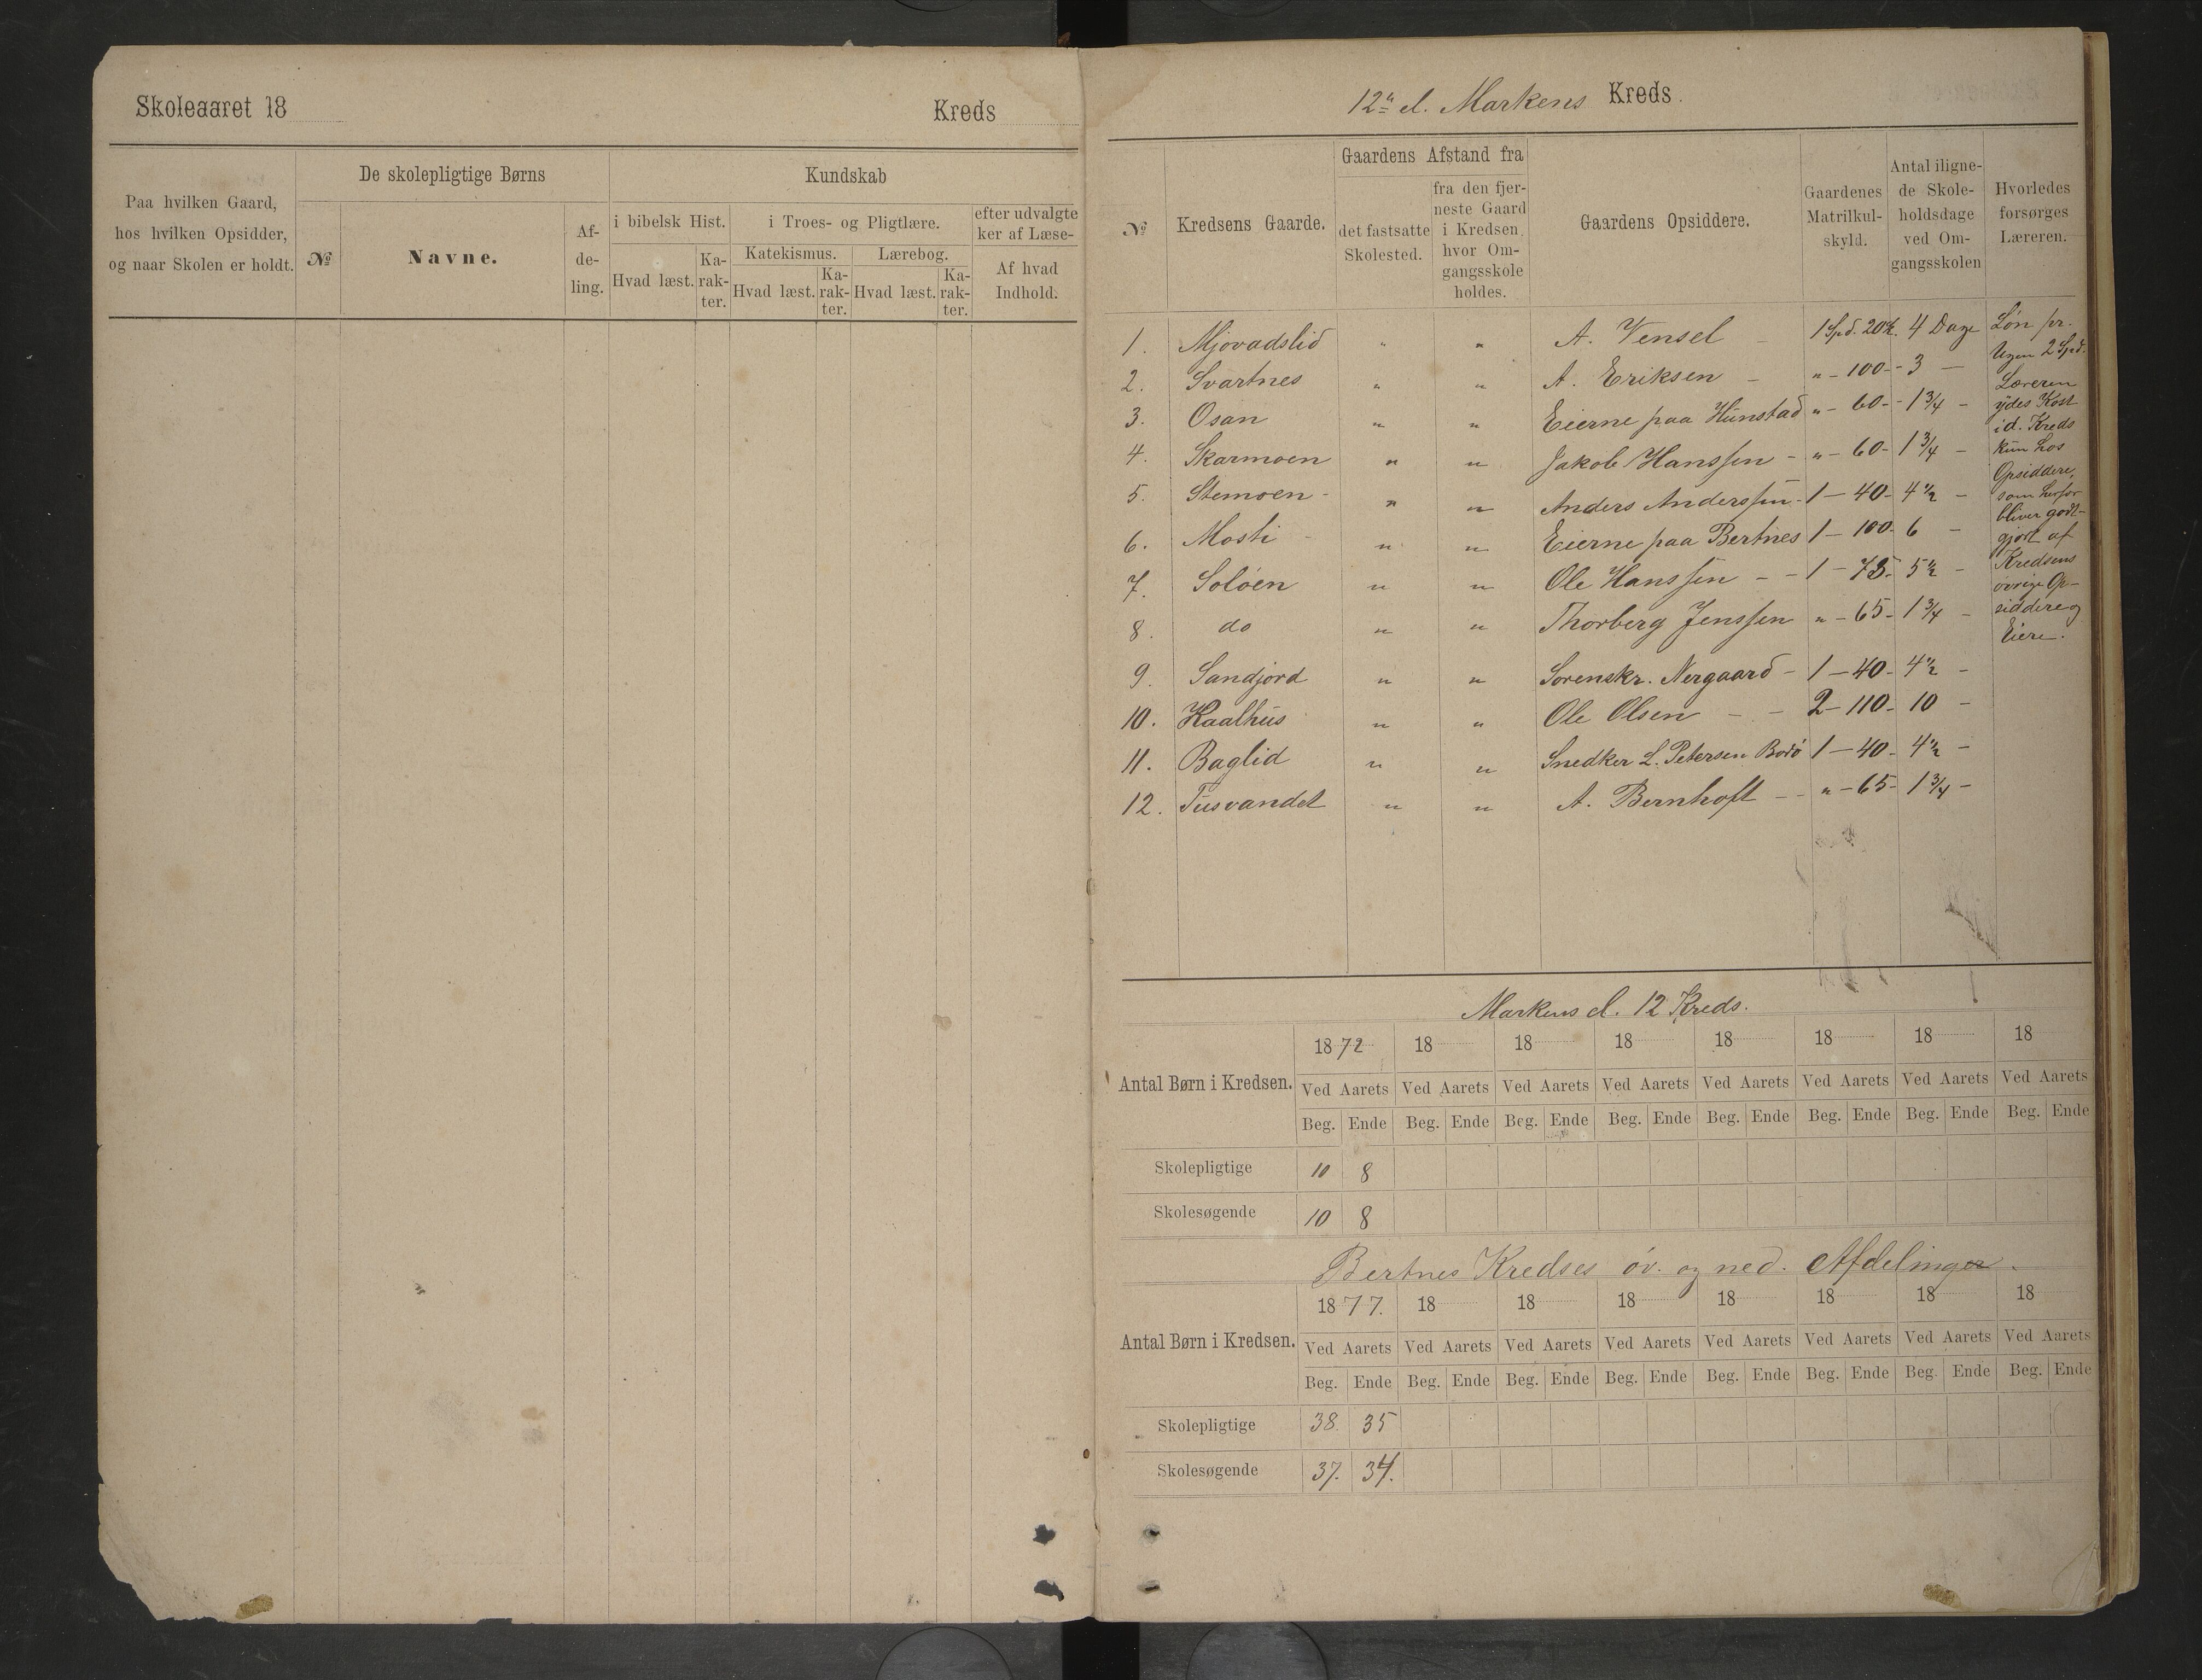 Skoleaaret 18
Kreds
Paa hvilken Gaard,
hos hvilken Opsidder,
og naar Skolen er holdt.
De skolepligtige Børns
№
Navne.
Af-
de-
ling.
Kundskab
i bibelsk Hist.
Hvad læst.
Ka-
rak-
ter.
i Troes- og Pligtlære.
Katekismus.
Hvad læst.
Ka-
rak-
ter.
Lærebog.
Hvad læst.
Ka-
rak-
ter.
efter udvalgte
ker af Læse-
Af hvad
Indhold.
12te el. Markens Kreds.
№
Kredsens Gaarde.
Gaardens Afstand fra
det fastsatte
Skolested.
fra den fjer-
neste Gaard
i Kredsen,
hvor Om-
gangsskole
holdes.
Gaardens Opsiddere.
Gaardenes
Matrilkul-
skyld.
Antal iligne-
de Skole-
holdsdage
ved Om-
gangsskolen
Hvorledes
forsørges
Læreren.
1. Mjovadslid " " A. Vensel – 1 Spd. 20 ß. 4 Dage
2. Svartnes " " A. Eriksen – " – 100 – 3 –
3. Osan " " Eierne paa Hunstad " – 60 – 1 3/4 –
4. Skarmoen " " Jakob Hanssen – " – 60 – 1 3/4 –
5. Stemoen – " " Anders Anderssen – 1 – 40 – 4 1/2 –
6. Mosti – " " Eierne paa Bertnes 1 – 100 – 6 –
7. Soløen " " Ole Hanssen – – 1 – 75 – 5 1/2 –
8. do " " Thorberg Jenssen " – 65 – 1 3/4 –
9. Sandjord " " Sorenskr. Nergaard – 1 – 40 – 4 1/2 –
10. Kaalhus " " Ole Olsen – – 2 – 110 – 10 –
11. Baglid " " Snedker L. Petersen Bodø 1 – 40 – 4 1/2 –
12. Tusvandet " " A. Bernhoft – – " – 65 – 1 3/4 –
Løn pr.
Ugen 2 Spd.
Læreren
ydes Kost
i d. Kreds
kun hos
Opsiddere,
som herfor
bliver godt-
gjort af
Kredsens
øvrige Op-
siddere og
Eiere.
Markens el. 12 Kreds.
Antal Børn i Kredsen.
1872 18 18 18 18 18 18 18
Ved Aarets Ved Aarets Ved Aarets Ved Aarets Ved Aarets Ved Aarets Ved Aarets Ved Aarets
Beg. Ende Beg. Ende Beg. Ende Beg. Ende Beg. Ende Beg. Ende Beg. Ende Beg. Ende
Skolepligtige 10 8
Skolesøgende 10 8
Bertnes Kredses øv. og ned. Afdelinger.
Antal Børn i Kredsen.
1877. 18 18 18 18 18 18 18
Ved Aarets Ved Aarets Ved Aarets Ved Aarets Ved Aarets Ved Aarets Ved Aarets Ved Aarets
Beg. Ende Beg. Ende Beg. Ende Beg. Ende Beg. Ende Beg. Ende Beg. Ende Beg. Ende
Skolepligtige 38. 35
Skolesøgende 37. 34.